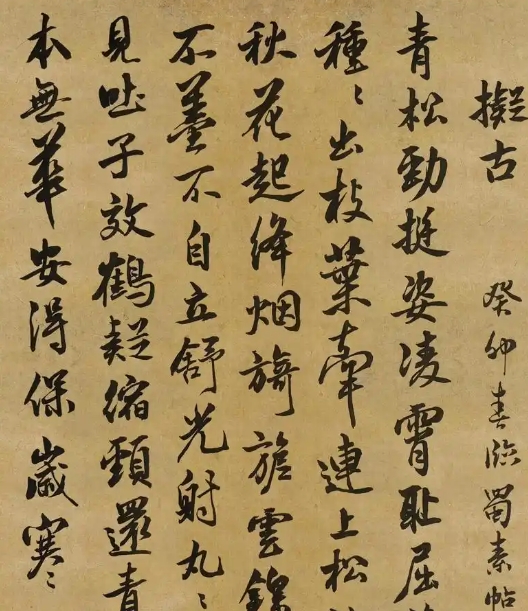 擬古
癸卯春臨蜀素帖
青松勁挺姿凌霄耻屈
種〻出枝葉牽連上松
秋花起絳烟旖旎雲錦
不羞不自立舒光射丸〻
見吐子效鶴疑縮頸還青
本無華安得保歲寒